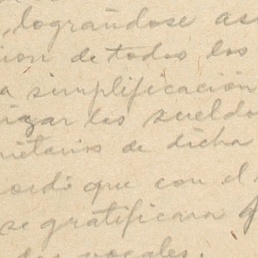 , lograñdose asi
ion de todos los
a simplificación
izar los sueldo
nietarios de dicha
cordé que con el
se gratificara
des vocales.